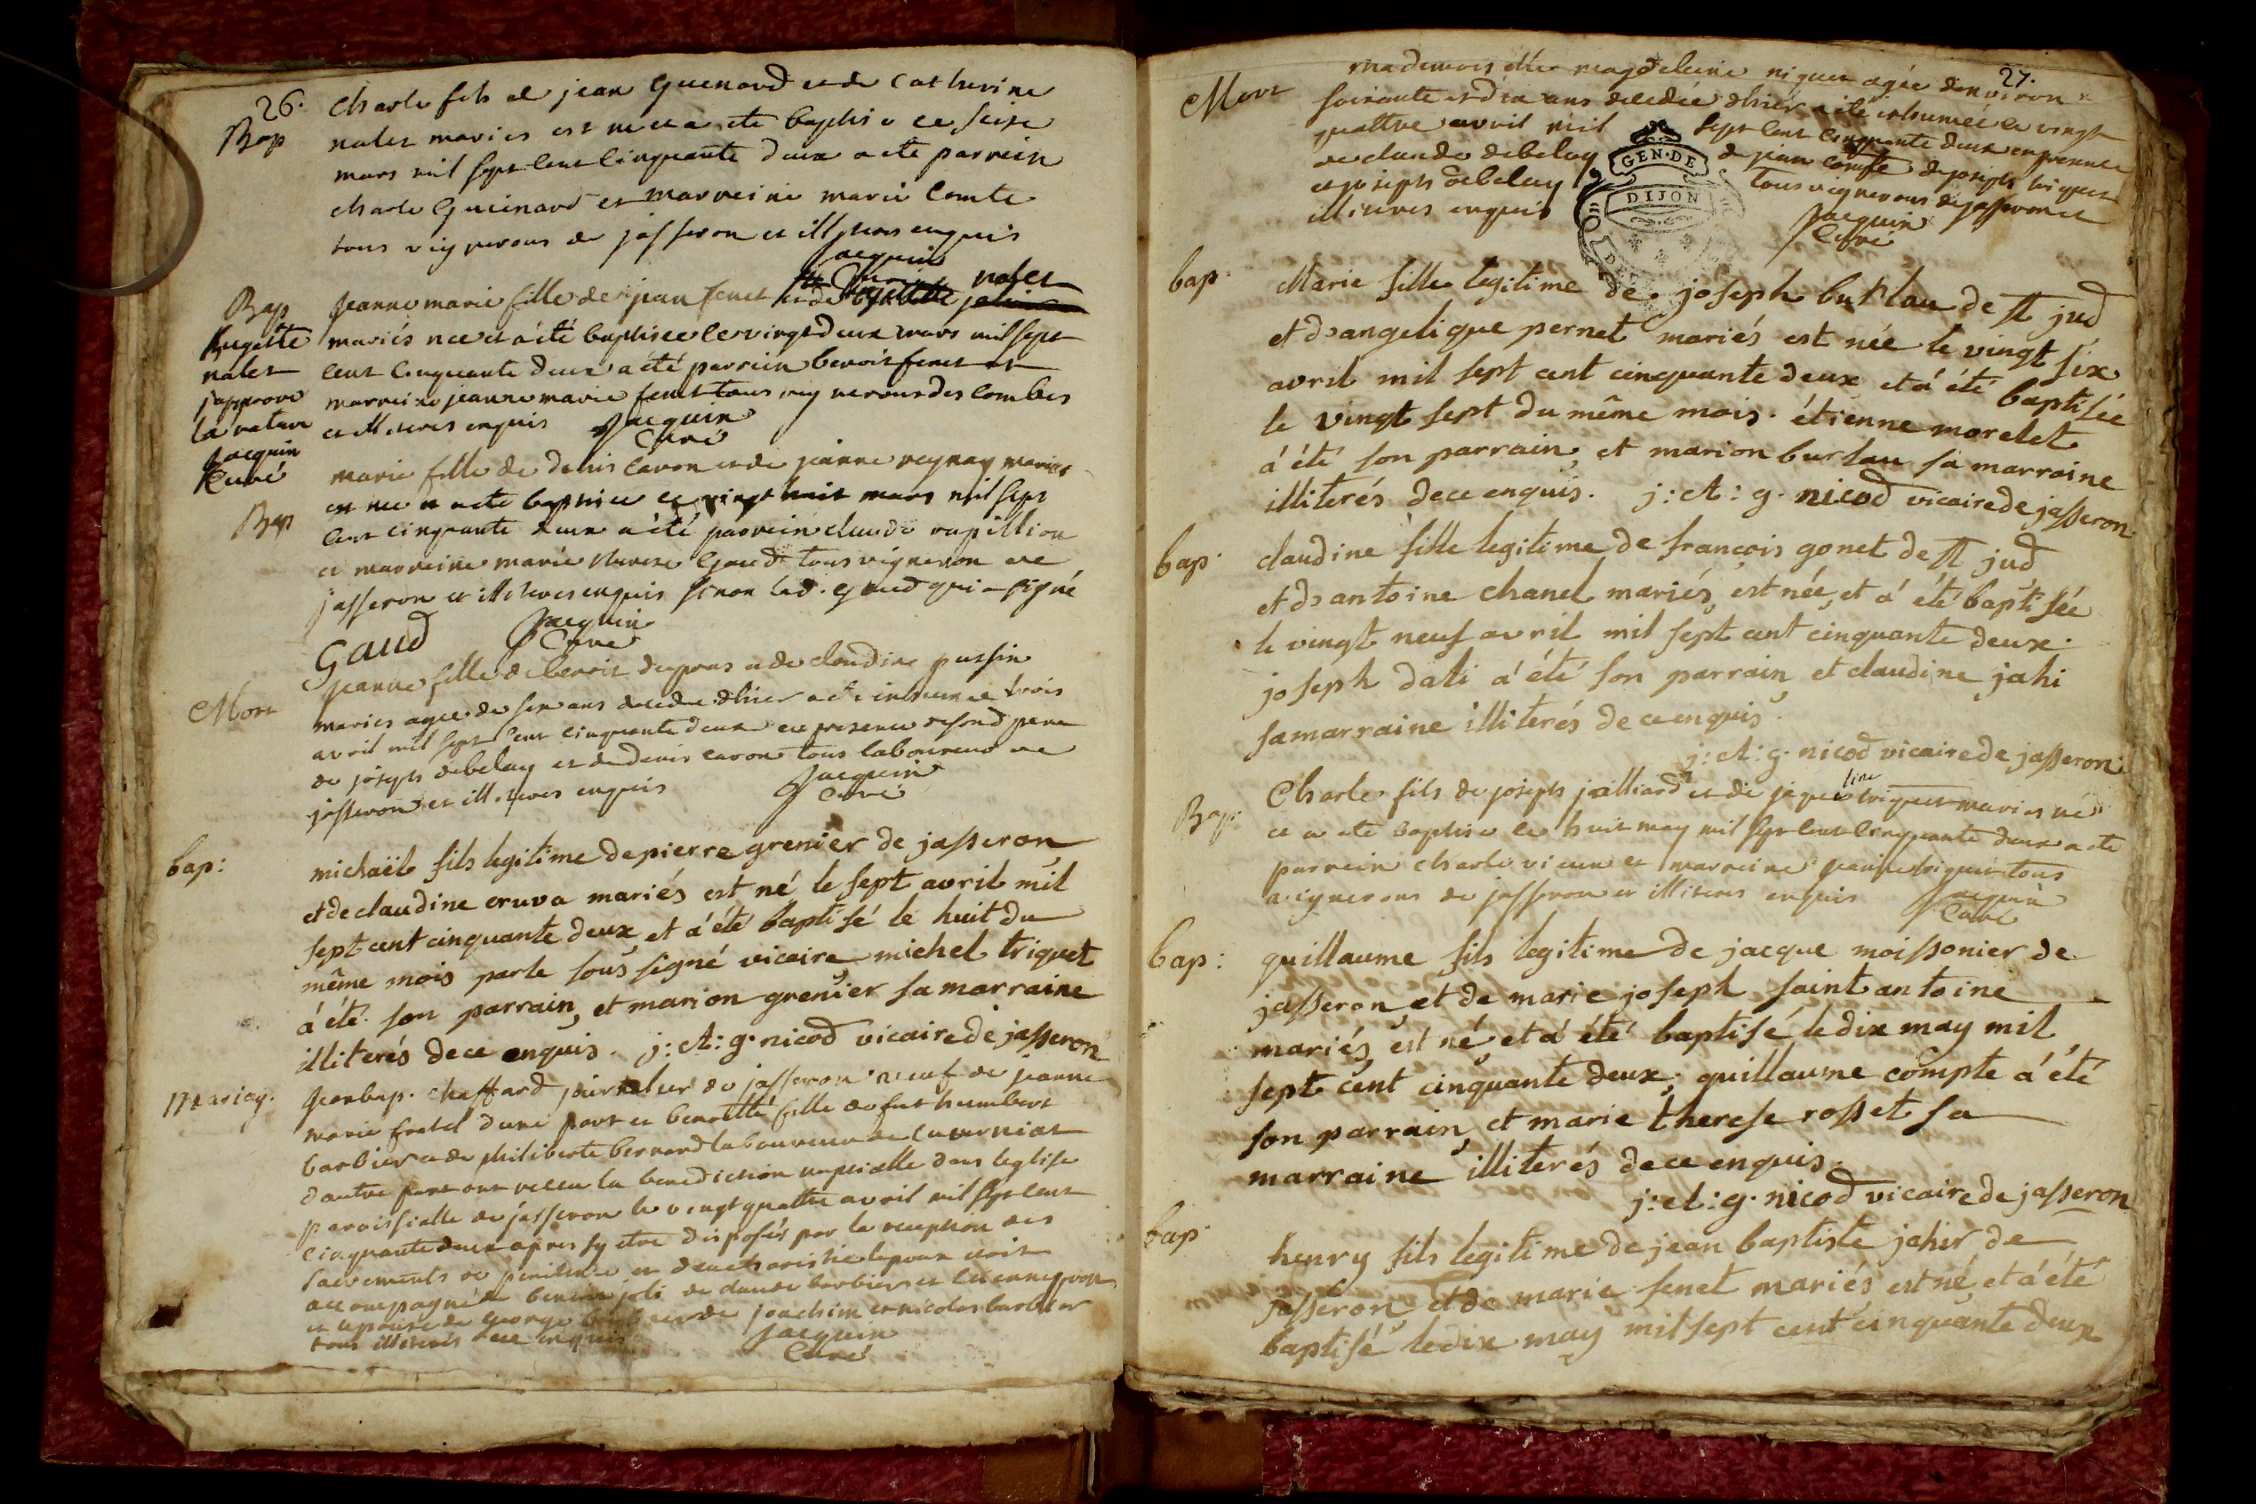 26.
Bap
charle fils de jean Guenard et de Catherine
nalet mariés est né et a ete baptisé ce seize
mars mil sept cent cinquante deux a ete parrein
charle Guenard et marreine marie Comte
tous vignerons de jasseron et illiteres enquis
Jacquin
Curé
Bap
jeanne marie fille de jean fenet et de nalet
mariés nee et a été baptisee le vingt deux mars mil sept
cent cinquante deux a été parrein benoit fenet et
marreine jeanne marie fenet tous vignerons des Combes
et illiteres enquis Jacquin
Curé
hugette
nalet
japprove
la rature
Jacquin
Curé
Bap
marie fille de denis Caron et de jeanne reynay mariés
est nee et a ete baptisee ce vingt huit mars mil sept
cent cinquante deux a été parrein claude rapillion
et marreine marie therese Gaud tous vigneron de
jasseron et illiteres enquis sinon lad. gaud qui a signé
Gaud Jacquin
Curé
Mort
jeanne fille de benoit dupras et de claudine pussin
mariés agee de six ans decedee dhier a ete inhumee trois
avril mil sept cent cinquante deux en presence de sond pere
de joseph debelay et de denis caron tous laboureurs de
jasseron et illiteres enquis Jacquin
Curé
bap:
michaël fils legitime de pierre grenier de jasseron
et de claudine cruva mariés est né le sept avril mil
sept cent cinquante deux, et á été baptisé le huit du
même mois par le sous signé vicaire michel triquet
á été son parrain, et marion grenier sa marraine
illiterés de ce enquis. j: A: g. nicod vicaire de jasseron
Mariag.
jean bap. chaffard journalier de jasseron veuf de jeanne
marie d'une part et benoitte fille de fut humbert
barbier et de philiberte bernard laboureur de Cuverniat
dautre part ont receu la benediction nuptialle dans leglise
paroissialle de jasseron le vingt quattre avril mil sept cent
cinquante deux apres sy etre disposés par la reception des
sacrements de penitence et deucharistie lepoux etoit
accompagné de joli de claude barbier et
et lepouse de george joachim et nicolas barbier
tous illiteres de ce enquis Jacquin
Curé
27.
Mort
mademoiselle magdeleine niquet agée denviron
soixante et dix ans decedée dhier a été inhumée ce vingt
quattre avril mil sept cent cinquante deux en presence
de claude debelay de jean Comte de joseph triquet
et joseph debelay tous vignerons de jasseron et
illiteres enquis Jacquin
Curé
GEN. DE
DIJON
bap.
Marie fille legitime de joseph burlau de St jud
et d'angelique pernet mariés est née le vingt six
avril mil sept cent cinquante deux et á été baptisée
le vingt sept du même mois. étienne morelet
á été son parrain, et marion burlau sa marraine
illiterés de ce enquis. j: A: g. nicod vicaire de jasseron
bap.
claudine fille legitime de françois gonet de St jud
et d'antoine chanel mariés, est née, et á été baptisée
le vingt neuf avril mil sept cent cinquante deux.
joseph dali á été son parrain et claudine jahi
sa marraine illiterés de ce enquis.
j: A: g. nicod vicaire de jasseron
Bap.
Charle fils de joseph jalliard et de jaqueline triquet mariés né
et a ete baptisé le huit may mil sept cent cinquante deux a ete
parrein charle vieux et marreine triquet tous
vignerons de jasseron et illiteres enquis Jacquin
Curé
bap:
guillaume fils legitime de jacque moissonier de
jasseron, et de marie joseph saint antoine
mariés, est né, et á été baptisé le dix may mil
sept cent cinquante deux; guillaume compte á été
son parrain, et marie therese rosset sa
marraine illiterés de ce enquis.
j: A: g. nicod vicaire de jasseron
bap.
henry fils legitime de jean baptiste jahir de
jasseron, et de marie fenet mariés, est né, et á été
baptisé le dix may mil sept cent cinquante deux